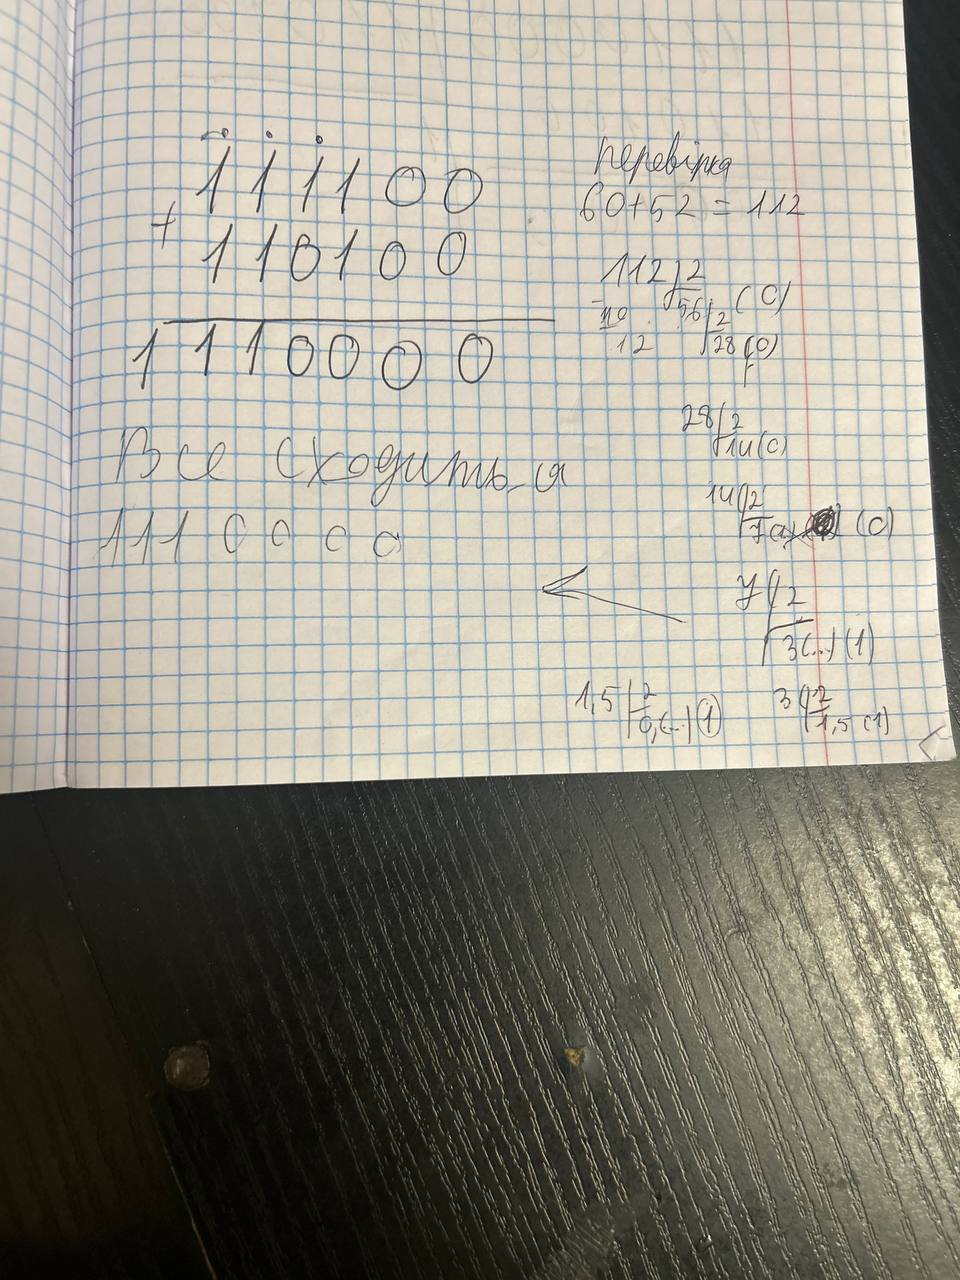 111100
+
110100
1110000
Все сходиться
1110000
перевірка
60+52=112
112 2
56 2 (0)
10
12 28 (0)
28 2
14 (0)
14 2
7 (0)
7 2
3(...) (1)
3 2
1,5 (1)
1,5 2
0,(...) 1